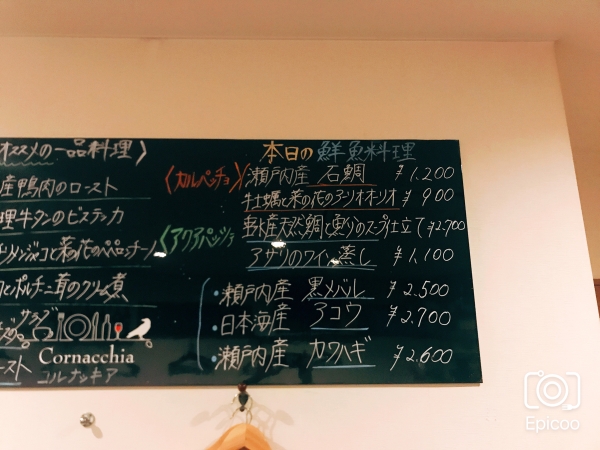 オススメの一品料理〉
産鴨肉のロースト
理牛タンのビステッカ
と菜の花のペペロンチーノ
とポルチーニ茸のクリーム煮
サラダ
Cornacchia
コルナッキア
ースト
本日の鮮魚料理
〈カルパッチョ〉瀬戸内産 石鯛 ¥1.200
牡蠣と菜の花のアーリオオーリオ ¥900
産天然鯛と魚介のスープ仕立て ¥2.700
アサリのワイン蒸し ¥1,100
〈アクアパッツァ
・瀬戸内産 黒メバル ¥2.500
・日本海産 アコウ ¥2,700
・瀬戸内産 カワハギ ¥2.600
Epicoo